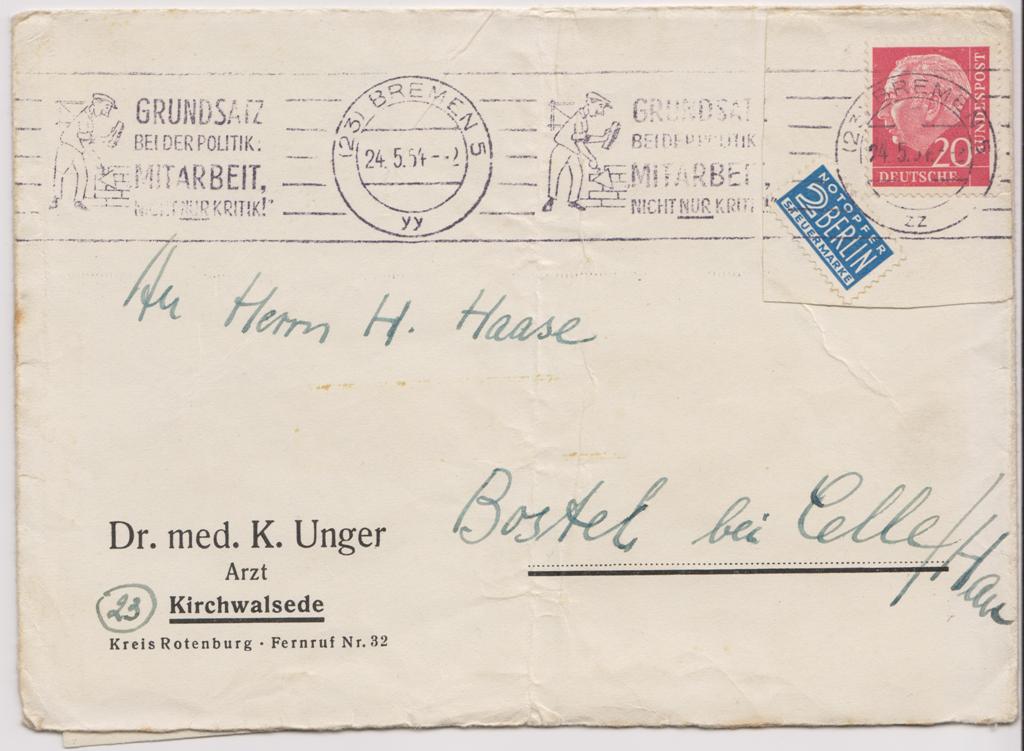 GRUNDSATZ
BEI DER POLITIK:
MITARBEIT,
NICHT NUR KRITIK!"
(23) BREMEN 5
24.5.54--2
yy
GRUNDSAT
BEI DER POLITIK
MITARBEIT,
NICHT NUR KRITI !"
(23) BREMEN 5
24.5.54
zz
20
DEUTSCHE
BUNDESPOST
NOTOPFER
2 BERLIN
STEUERMARKE
An Herrn H. Haase
Bostel bei Celle/Han
Dr. med. K. Unger
Arzt
23 Kirchwalsede
Kreis Rotenburg · Fernruf Nr. 32